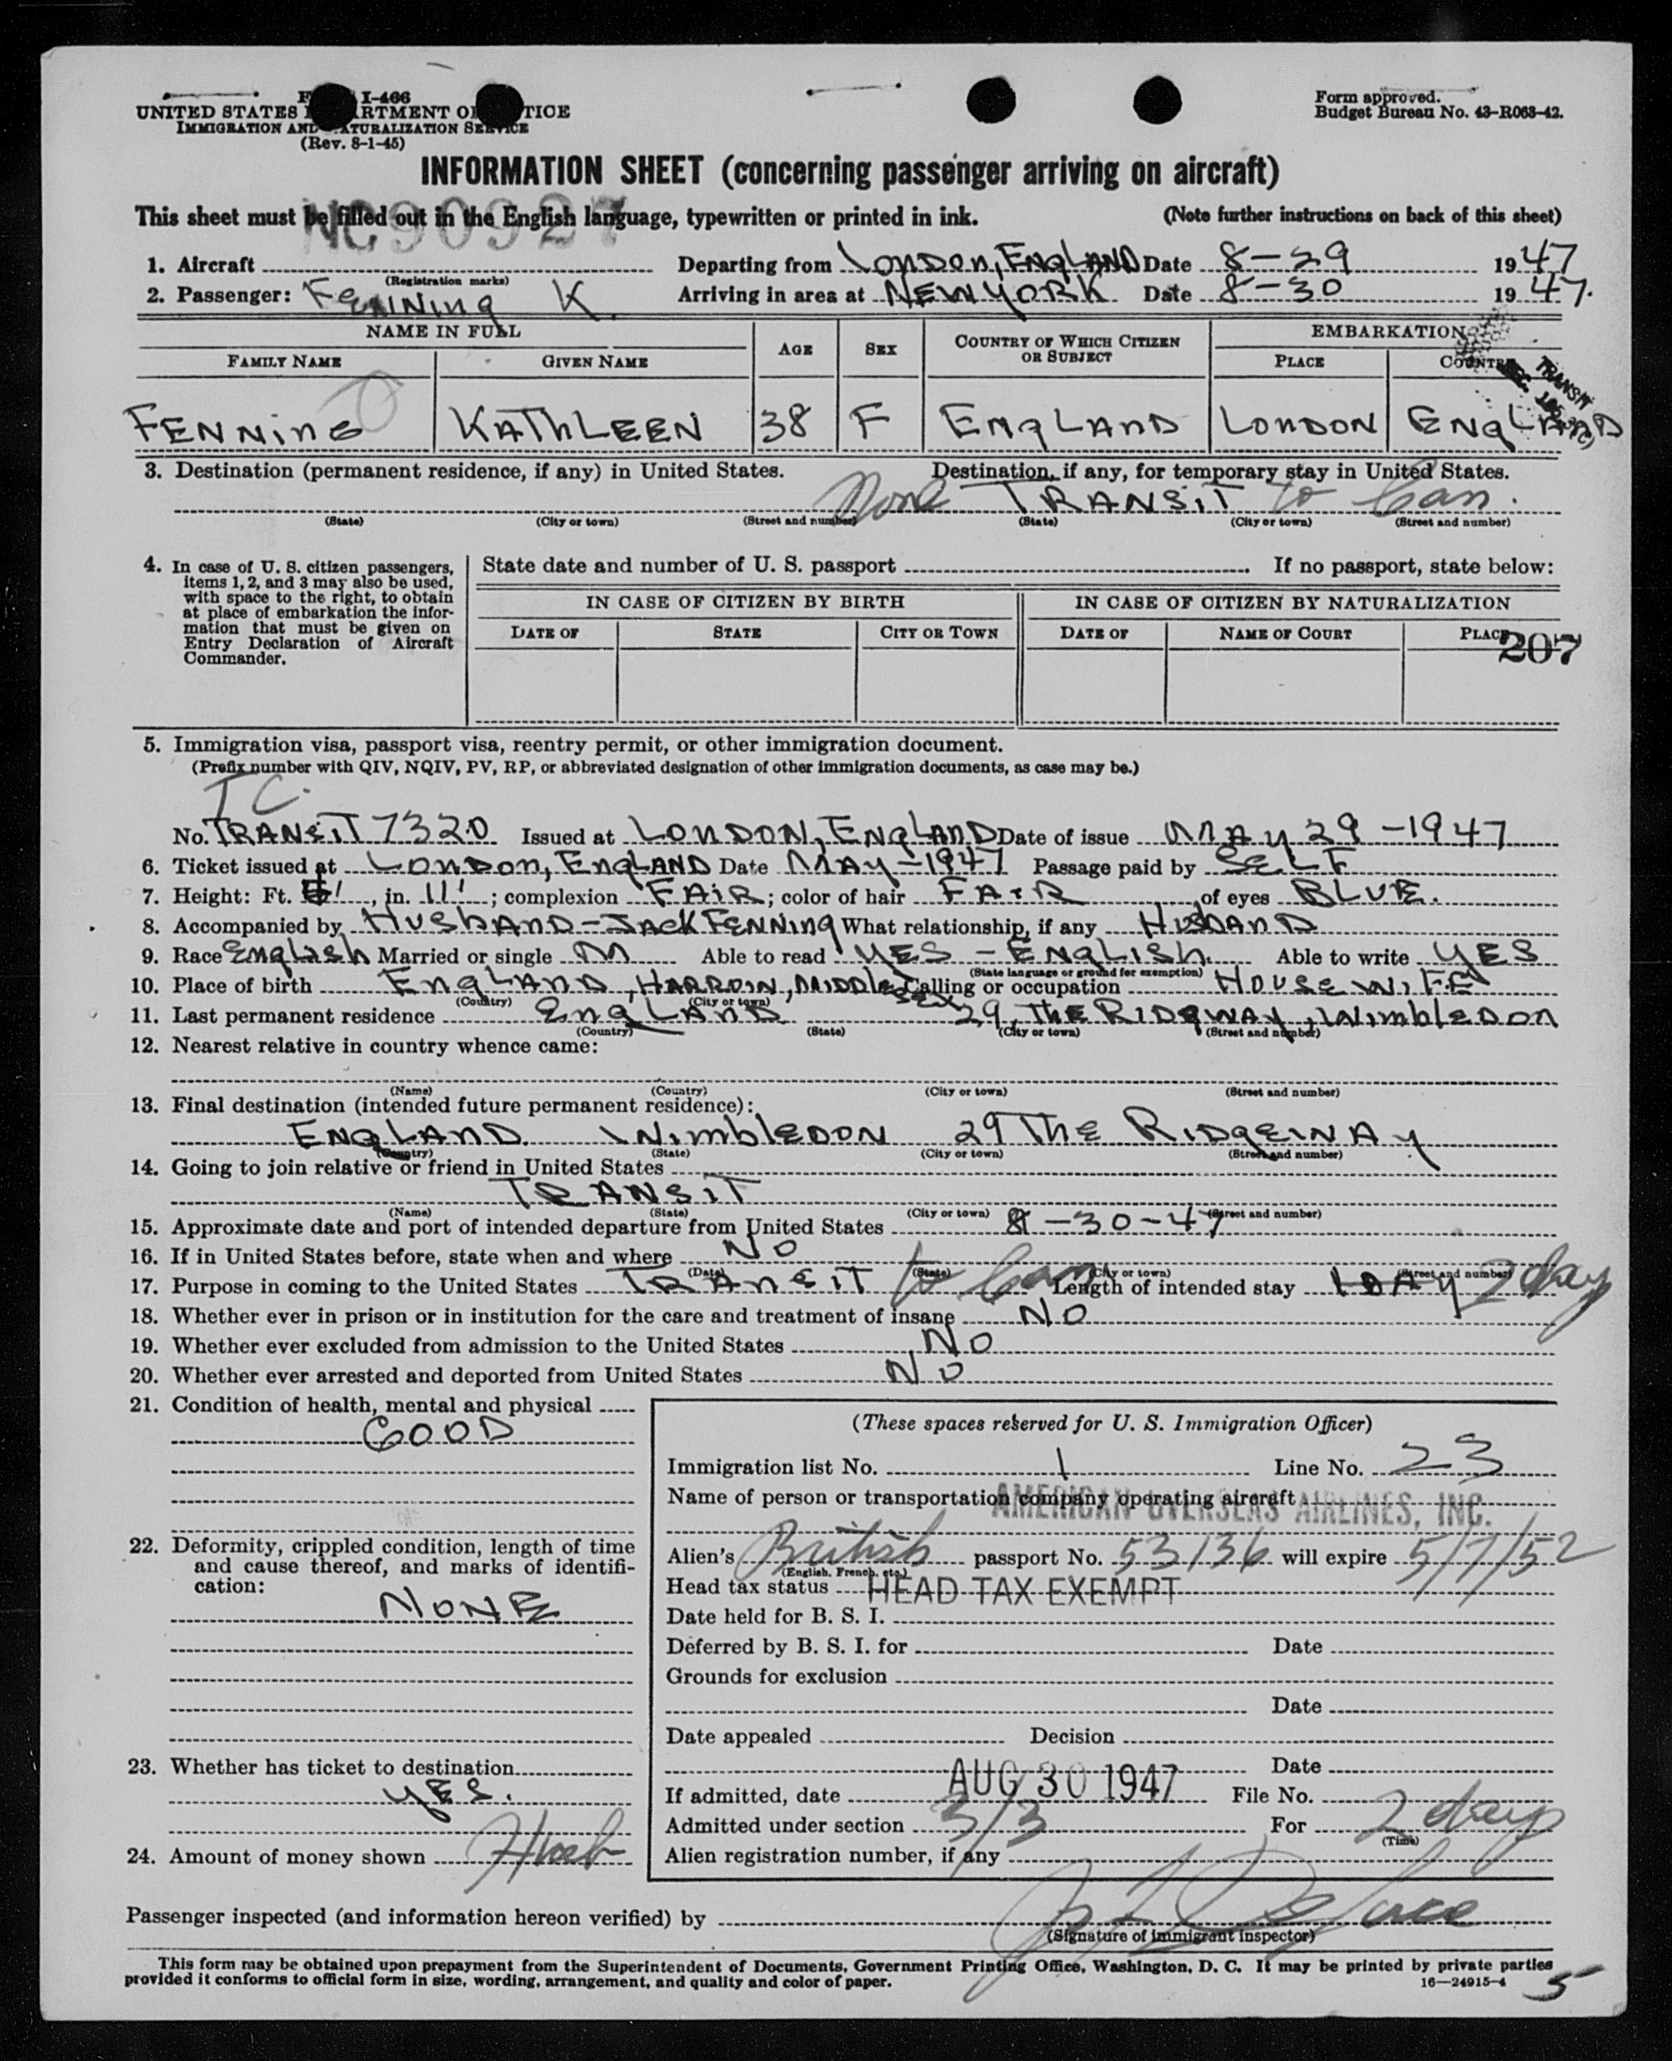 Form approved.
Budget Bureau No. 43-R063-42.
I-466
UNITED STATES
IMMIGRATION AND NATURALIZATION SERVICE
(Rev. 8-1-45)
INFORMATION SHEET (concerning passenger arriving on aircraft)
This sheet must be filled out in the English language, typewritten or printed in ink. (Note further instructions on back of this sheet)
NC90927
1. Aircraft Departing from LONDON, ENGLAND Date 8-29 1947
(Registration marks)
2. Passenger: FENNING K. Arriving in area at NEW YORK Date 8-30 1947.
NAME IN FULL AGE SEX COUNTRY OF WHICH CITIZEN OR SUBJECT EMBARKATION
FAMILY NAME GIVEN NAME PLACE COUNTRY
TRANSIT
FENNING KATHLEEN 38 F ENGLAND LONDON ENGLAND
3. Destination (permanent residence, if any) in United States. Destination, if any, for temporary stay in United States.
None TRANSIT to Can.
(State) (City or town) (Street and number) (State) (City or town) (Street and number)
4. In case of U. S. citizen passengers, items 1, 2, and 3 may also be used, with space to the right, to obtain at place of embarkation the information that must be given on Entry Declaration of Aircraft Commander.
State date and number of U. S. passport If no passport, state below:
IN CASE OF CITIZEN BY BIRTH IN CASE OF CITIZEN BY NATURALIZATION
DATE OF STATE CITY OR TOWN DATE OF NAME OF COURT PLACE
207
5. Immigration visa, passport visa, reentry permit, or other immigration document.
(Prefix number with QIV, NQIV, PV, RP, or abbreviated designation of other immigration documents, as case may be.)
TC.
No. TRANSIT 7320 Issued at LONDON, ENGLAND Date of issue MAY 29-1947
6. Ticket issued at LONDON, ENGLAND Date MAY-1947 Passage paid by SELF
7. Height: Ft. 5', in. 11'; complexion FAIR; color of hair FAIR, of eyes BLUE.
8. Accompanied by HUSBAND-JACK FENNING What relationship, if any HUSBAND
9. Race ENGLISH Married or single M Able to read YES - ENGLISH. Able to write YES
(State language or ground for exemption)
10. Place of birth ENGLAND, HARROW, MIDDLESEX Calling or occupation HOUSEWIFE
(Country) (City or town)
11. Last permanent residence ENGLAND 29, THE RIDGWAY, WIMBLEDON
(Country) (State) (City or town) (Street and number)
12. Nearest relative in country whence came:
(Name) (Country) (City or town) (Street and number)
13. Final destination (intended future permanent residence):
ENGLAND WIMBLEDON 29 THE RIDGEWAY
(Country) (State) (City or town) (Street and number)
14. Going to join relative or friend in United States
TRANSIT
(Name) (State) (City or town) (Street and number)
15. Approximate date and port of intended departure from United States 8-30-47
16. If in United States before, state when and where NO
(Date) (State) (City or town) (Street and number)
17. Purpose in coming to the United States TRANSIT to Can Length of intended stay 1 DAY 2 days
18. Whether ever in prison or in institution for the care and treatment of insane NO
19. Whether ever excluded from admission to the United States NO
20. Whether ever arrested and deported from United States NO
21. Condition of health, mental and physical
GOOD
22. Deformity, crippled condition, length of time and cause thereof, and marks of identification:
NONE
23. Whether has ticket to destination
YES.
24. Amount of money shown
(These spaces reserved for U. S. Immigration Officer)
Immigration list No. 1 Line No. 23
Name of person or transportation company operating aircraft AMERICAN OVERSEAS AIRLINES, INC.
Alien's British passport No. 53136 will expire 5/7/52
(English, French, etc.)
Head tax status HEAD TAX EXEMPT
Date held for B. S. I.
Deferred by B. S. I. for Date
Grounds for exclusion
Date
Date appealed Decision
Date
If admitted, date AUG 30 1947 File No.
Admitted under section 3/3 For 2 days
(Time)
Alien registration number, if any
Passenger inspected (and information hereon verified) by
(Signature of immigrant inspector)
This form may be obtained upon prepayment from the Superintendent of Documents, Government Printing Office, Washington, D. C. It may be printed by private parties
provided it conforms to official form in size, wording, arrangement, and quality and color of paper. 16—24915-4 5